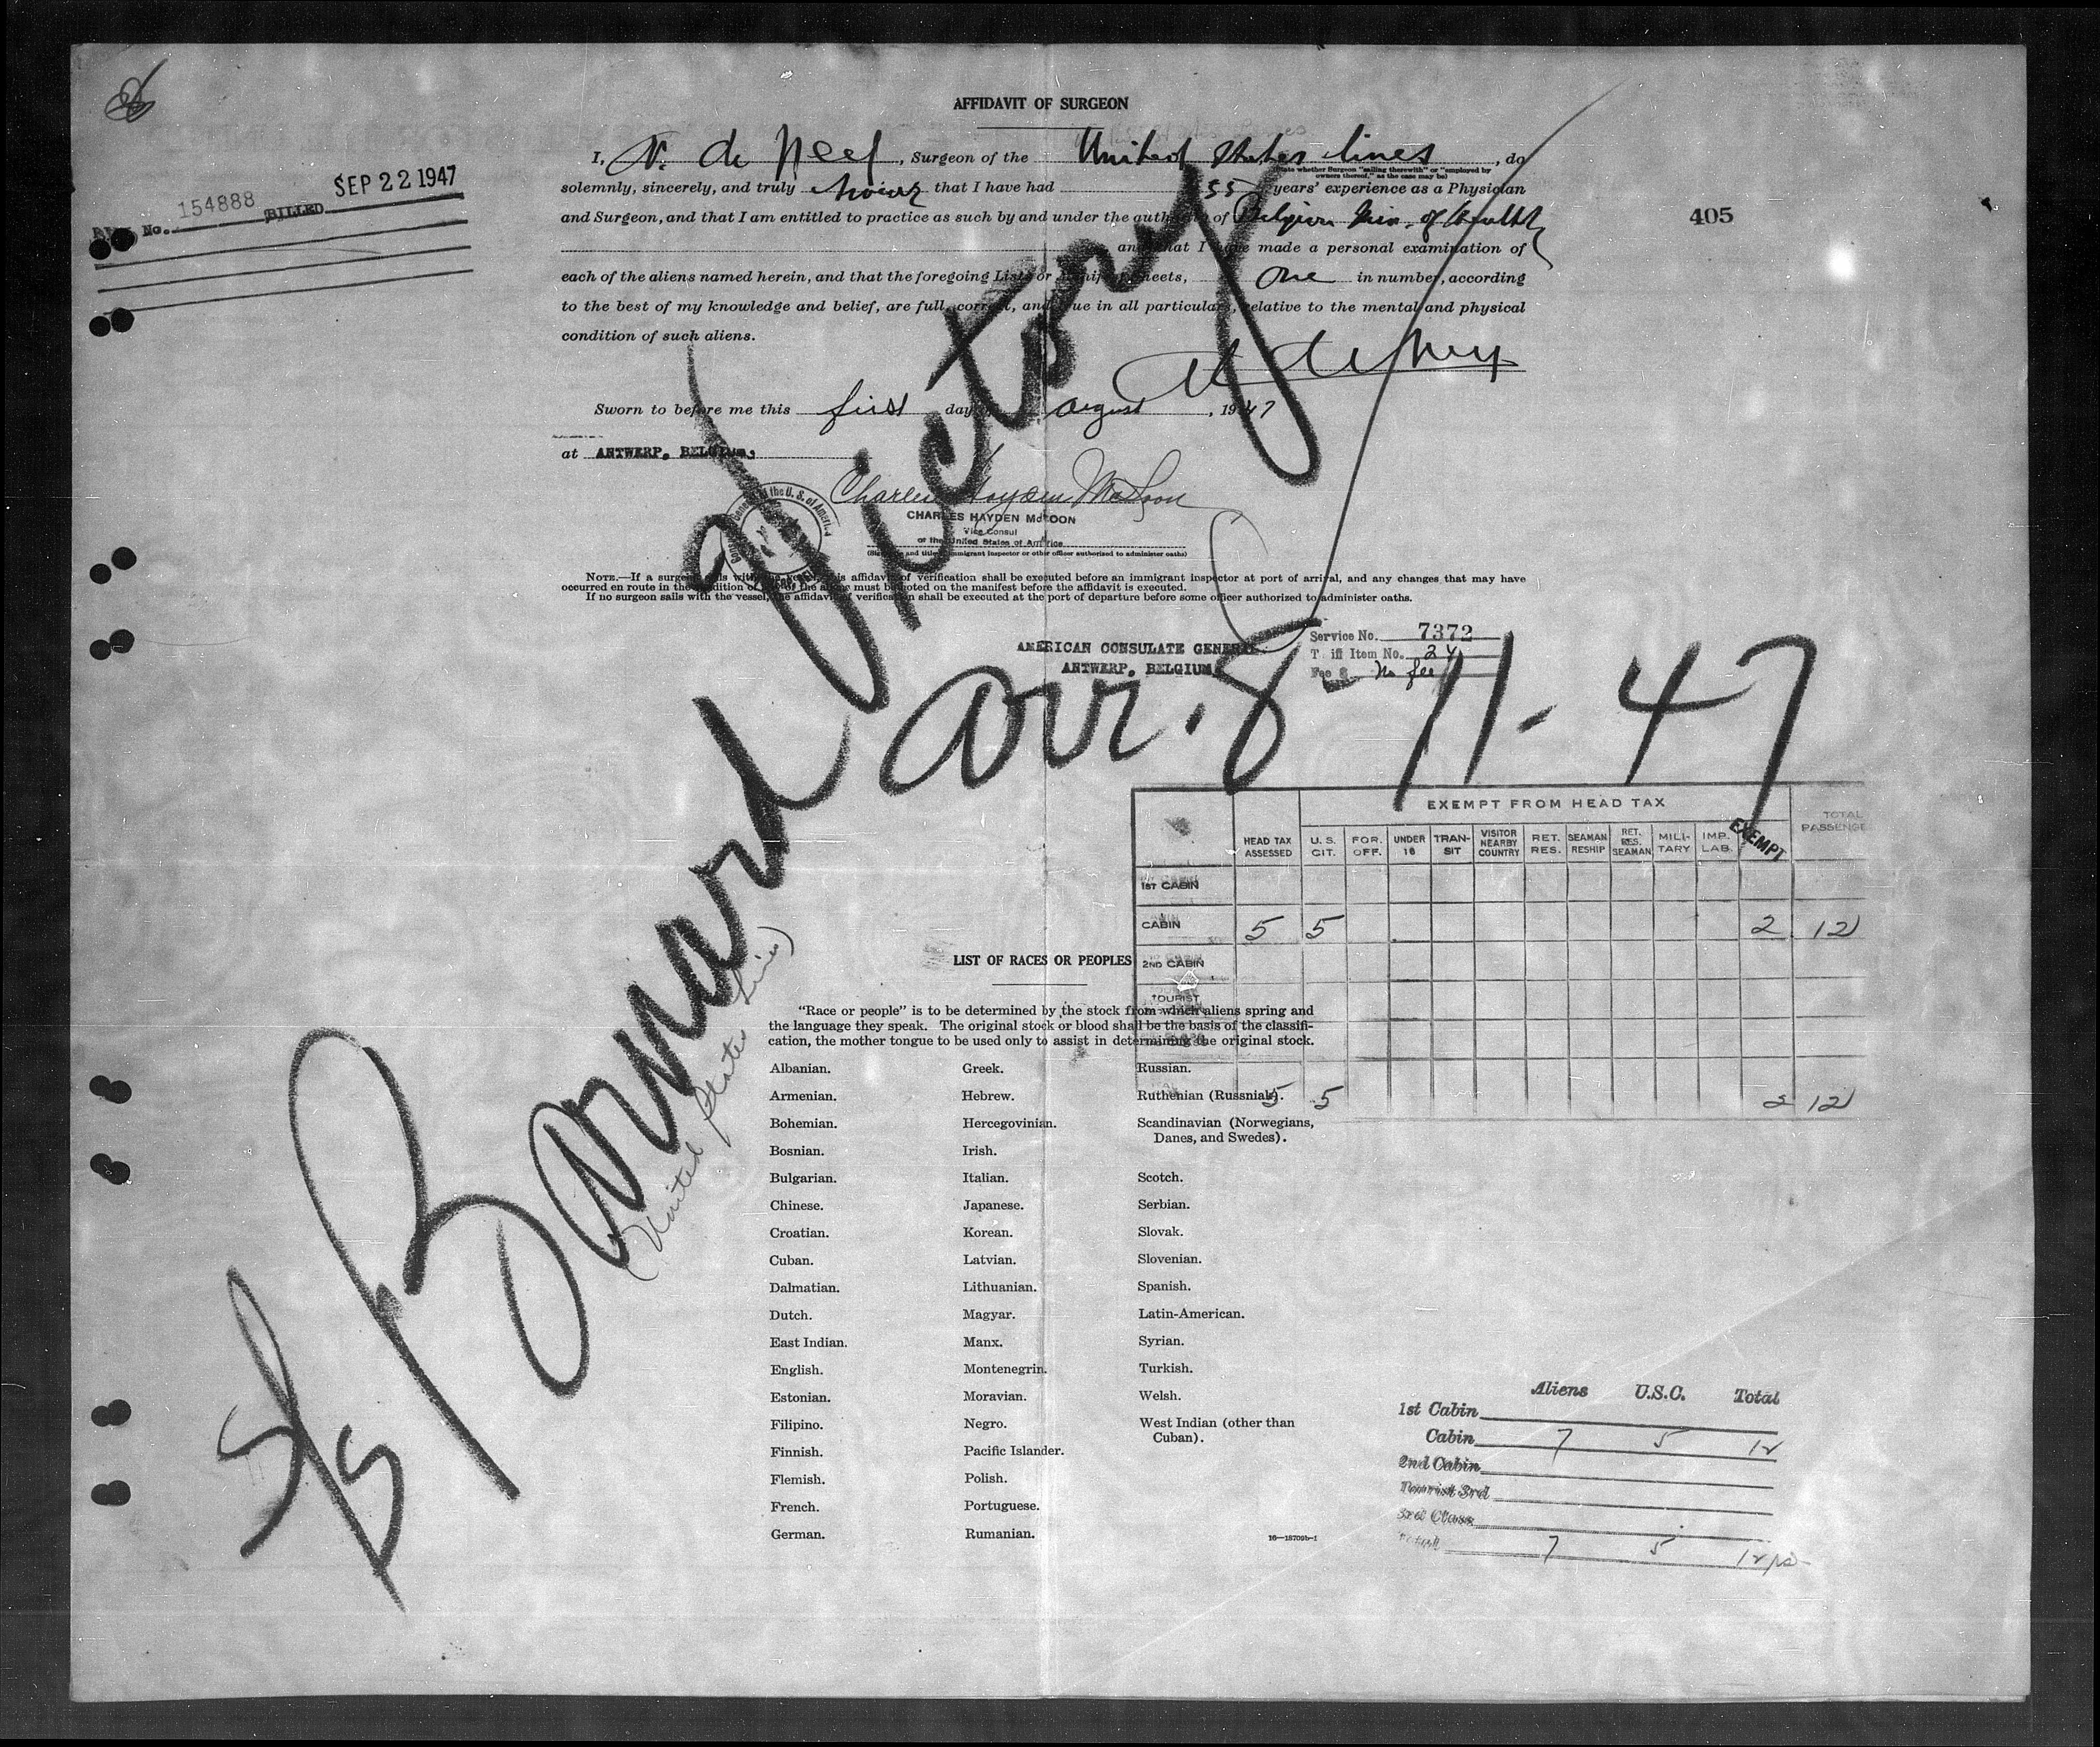 AFFIDAVIT OF SURGEON
I, N. de Neef, Surgeon of the United States Lines, do
(State whether Surgeon "sailing therewith" or "employed by owners thereof," as the case may be)
solemnly, sincerely, and truly swear that I have had 55 years' experience as a Physician
and Surgeon, and that I am entitled to practice as such by and under the authority of Belgian Min. of Health
and that I have made a personal examination of
each of the aliens named herein, and that the foregoing Lists or Manifest Sheets, one in number, according
to the best of my knowledge and belief, are full, correct, and true in all particulars, relative to the mental and physical
condition of such aliens.
Sworn to before me this first day of August, 1947
at ANTWERP, BELGIUM,
Charles Hayden McLoon
CHARLES HAYDEN McLOON
Vice Consul
of the United States of America
(Signature and title, immigrant inspector or other officer authorized to administer oaths)
NOTE.—If a surgeon sails with the vessel, this affidavit of verification shall be executed before an immigrant inspector at port of arrival, and any changes that may have
occurred en route in the condition of any of the aliens must be noted on the manifest before the affidavit is executed.
If no surgeon sails with the vessel, the affidavit of verification shall be executed at the port of departure before some officer authorized to administer oaths.
BILL No. 154888 BILLED SEP 22 1947
405
AMERICAN CONSULATE GENERAL
ANTWERP, BELGIUM
Service No. 7372
Tariff Item No. 24
Fee $ No fee
S/S Barnard Victory
(United States Lines)
arr. 8-11-47
EXEMPT FROM HEAD TAX
HEAD TAX ASSESSED U.S. CIT. FOR. OFF. UNDER 16 TRANSIT VISITOR NEARBY COUNTRY RET. RES. SEAMAN RESHIP RET. RES. SEAMAN MILITARY IMP. LAB. EXEMPT TOTAL PASSENGE
1ST CABIN
CABIN 5 5 2 12
2ND CABIN
TOURIST
5 5 2 12
LIST OF RACES OR PEOPLES
"Race or people" is to be determined by the stock from which aliens spring and
the language they speak. The original stock or blood shall be the basis of the classifi-
cation, the mother tongue to be used only to assist in determining the original stock.
Albanian.
Armenian.
Bohemian.
Bosnian.
Bulgarian.
Chinese.
Croatian.
Cuban.
Dalmatian.
Dutch.
East Indian.
English.
Estonian.
Filipino.
Finnish.
Flemish.
French.
German.
Greek.
Hebrew.
Hercegovinian.
Irish.
Italian.
Japanese.
Korean.
Latvian.
Lithuanian.
Magyar.
Manx.
Montenegrin.
Moravian.
Negro.
Pacific Islander.
Polish.
Portuguese.
Rumanian.
Russian.
Ruthenian (Russniak).
Scandinavian (Norwegians,
Danes, and Swedes).
Scotch.
Serbian.
Slovak.
Slovenian.
Spanish.
Latin-American.
Syrian.
Turkish.
Welsh.
West Indian (other than
Cuban).
16—18709b-1
Aliens U.S.C. Total
1st Cabin
Cabin 7 5 12
2nd Cabin
Tourist 3rd
3rd Class
Total 7 5 12